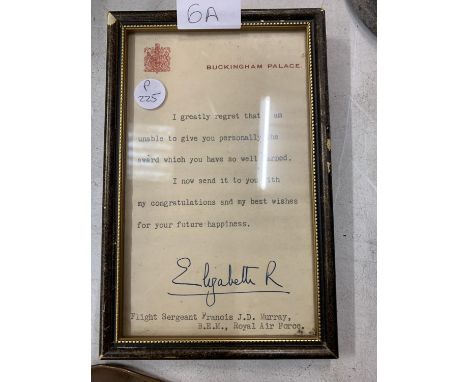 6A
BUCKINGHAM PALACE
P
225
I greatly regret that I am
unable to give you personally the
award which you have so well earned.
I now send it to you with
my congratulations and my best wishes
for your future happiness.
Elizabeth R
Flight Sergeant Francis J.D. Murray,
B.E.M., Royal Air Force.